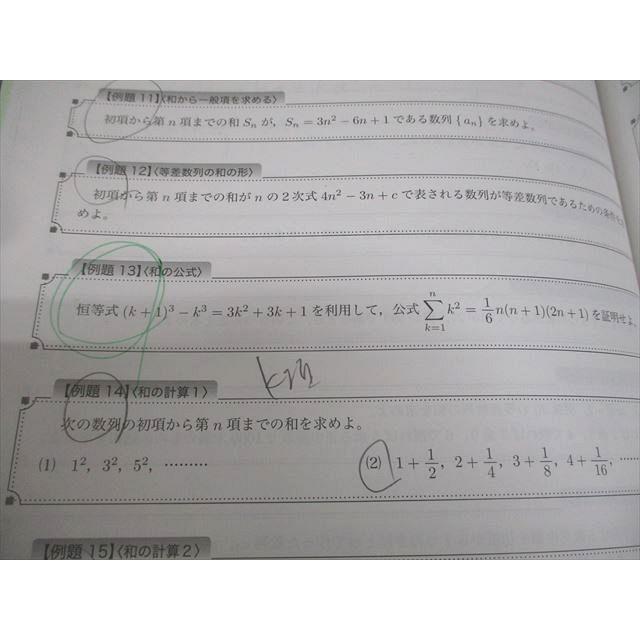 【例題 11】〈和から一般項を求める〉
初項から第 n 項までの和 Sₙ が，Sₙ = 3n² − 6n + 1 である数列 { aₙ } を求めよ。
【例題 12】〈等差数列の和の形〉
初項から第 n 項までの和が n の 2 次式 4n² − 3n + c で表される数列が等差数列であるための条件を
めよ。
【例題 13】〈和の公式〉
恒等式 (k + 1)³ − k³ = 3k² + 3k + 1 を利用して，公式 \sum_{k=1}^{n} k² = \frac{1}{6} n(n + 1)(2n + 1) を証明せよ。
【例題 14】〈和の計算 1〉
次の数列の初項から第 n 項までの和を求めよ。
(1) 1²，3²，5²，………
(2) 1 + \frac{1}{2}，2 + \frac{1}{4}，3 + \frac{1}{8}，4 + \frac{1}{16}，……
【例題 15】〈和の計算 2〉